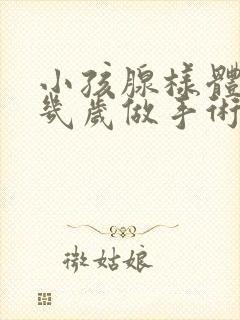 小孩腺樣體
幾歲做手術
微姑娘